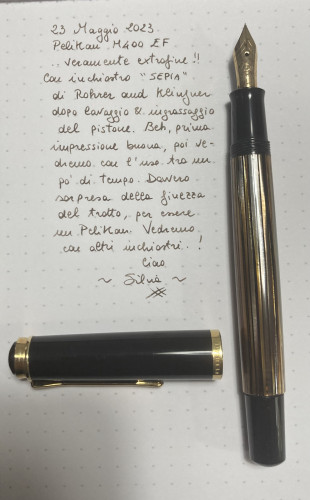 23 Maggio 2023
Pelikan M400 EF
..veramente extrafine!!
Con inchiostro "SEPIA"
di Rohrer and Klingner
dopo lavaggio & ingrassaggio
del pistone. Beh, prima
impressione buona, poi ve-
dremo con l'uso tra un
po' di tempo. Davvero
sorpresa della finezza
del tratto, per essere
un Pelikan. Vedremo
con altri inchiostri..!
Ciao
~ Silvia ~